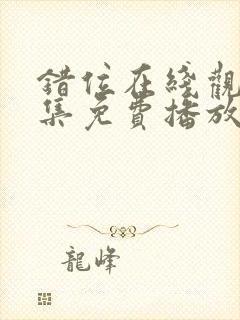 錯位在綫觀
集免費播放
龍峰